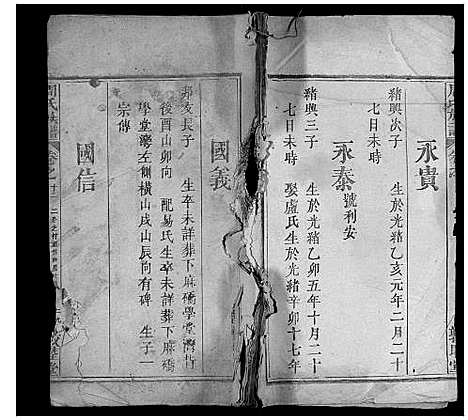 永貴
緒興次子 生於光緒乙亥元年二月二十
七日未時
永泰 號利安
緒興三子 生於光緒乙卯五年十月二十
七日未時 娶盧氏生於光緒辛卯十七年
國義
邦友長子 生卒未詳葬下麻橋學堂灣背
後酉山卯向 配易氏生卒未詳葬下麻橋
學堂灣左側橫山戌山辰向有碑 生子一
宗傳
國信
周氏族譜